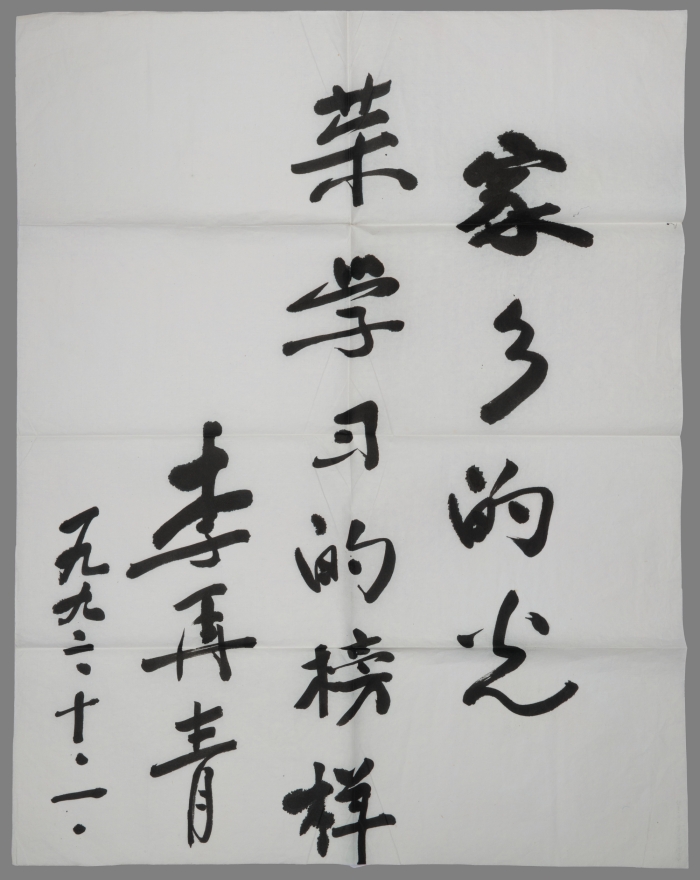 家乡的光
荣学习的榜样
李再青
一九九二.十.一.